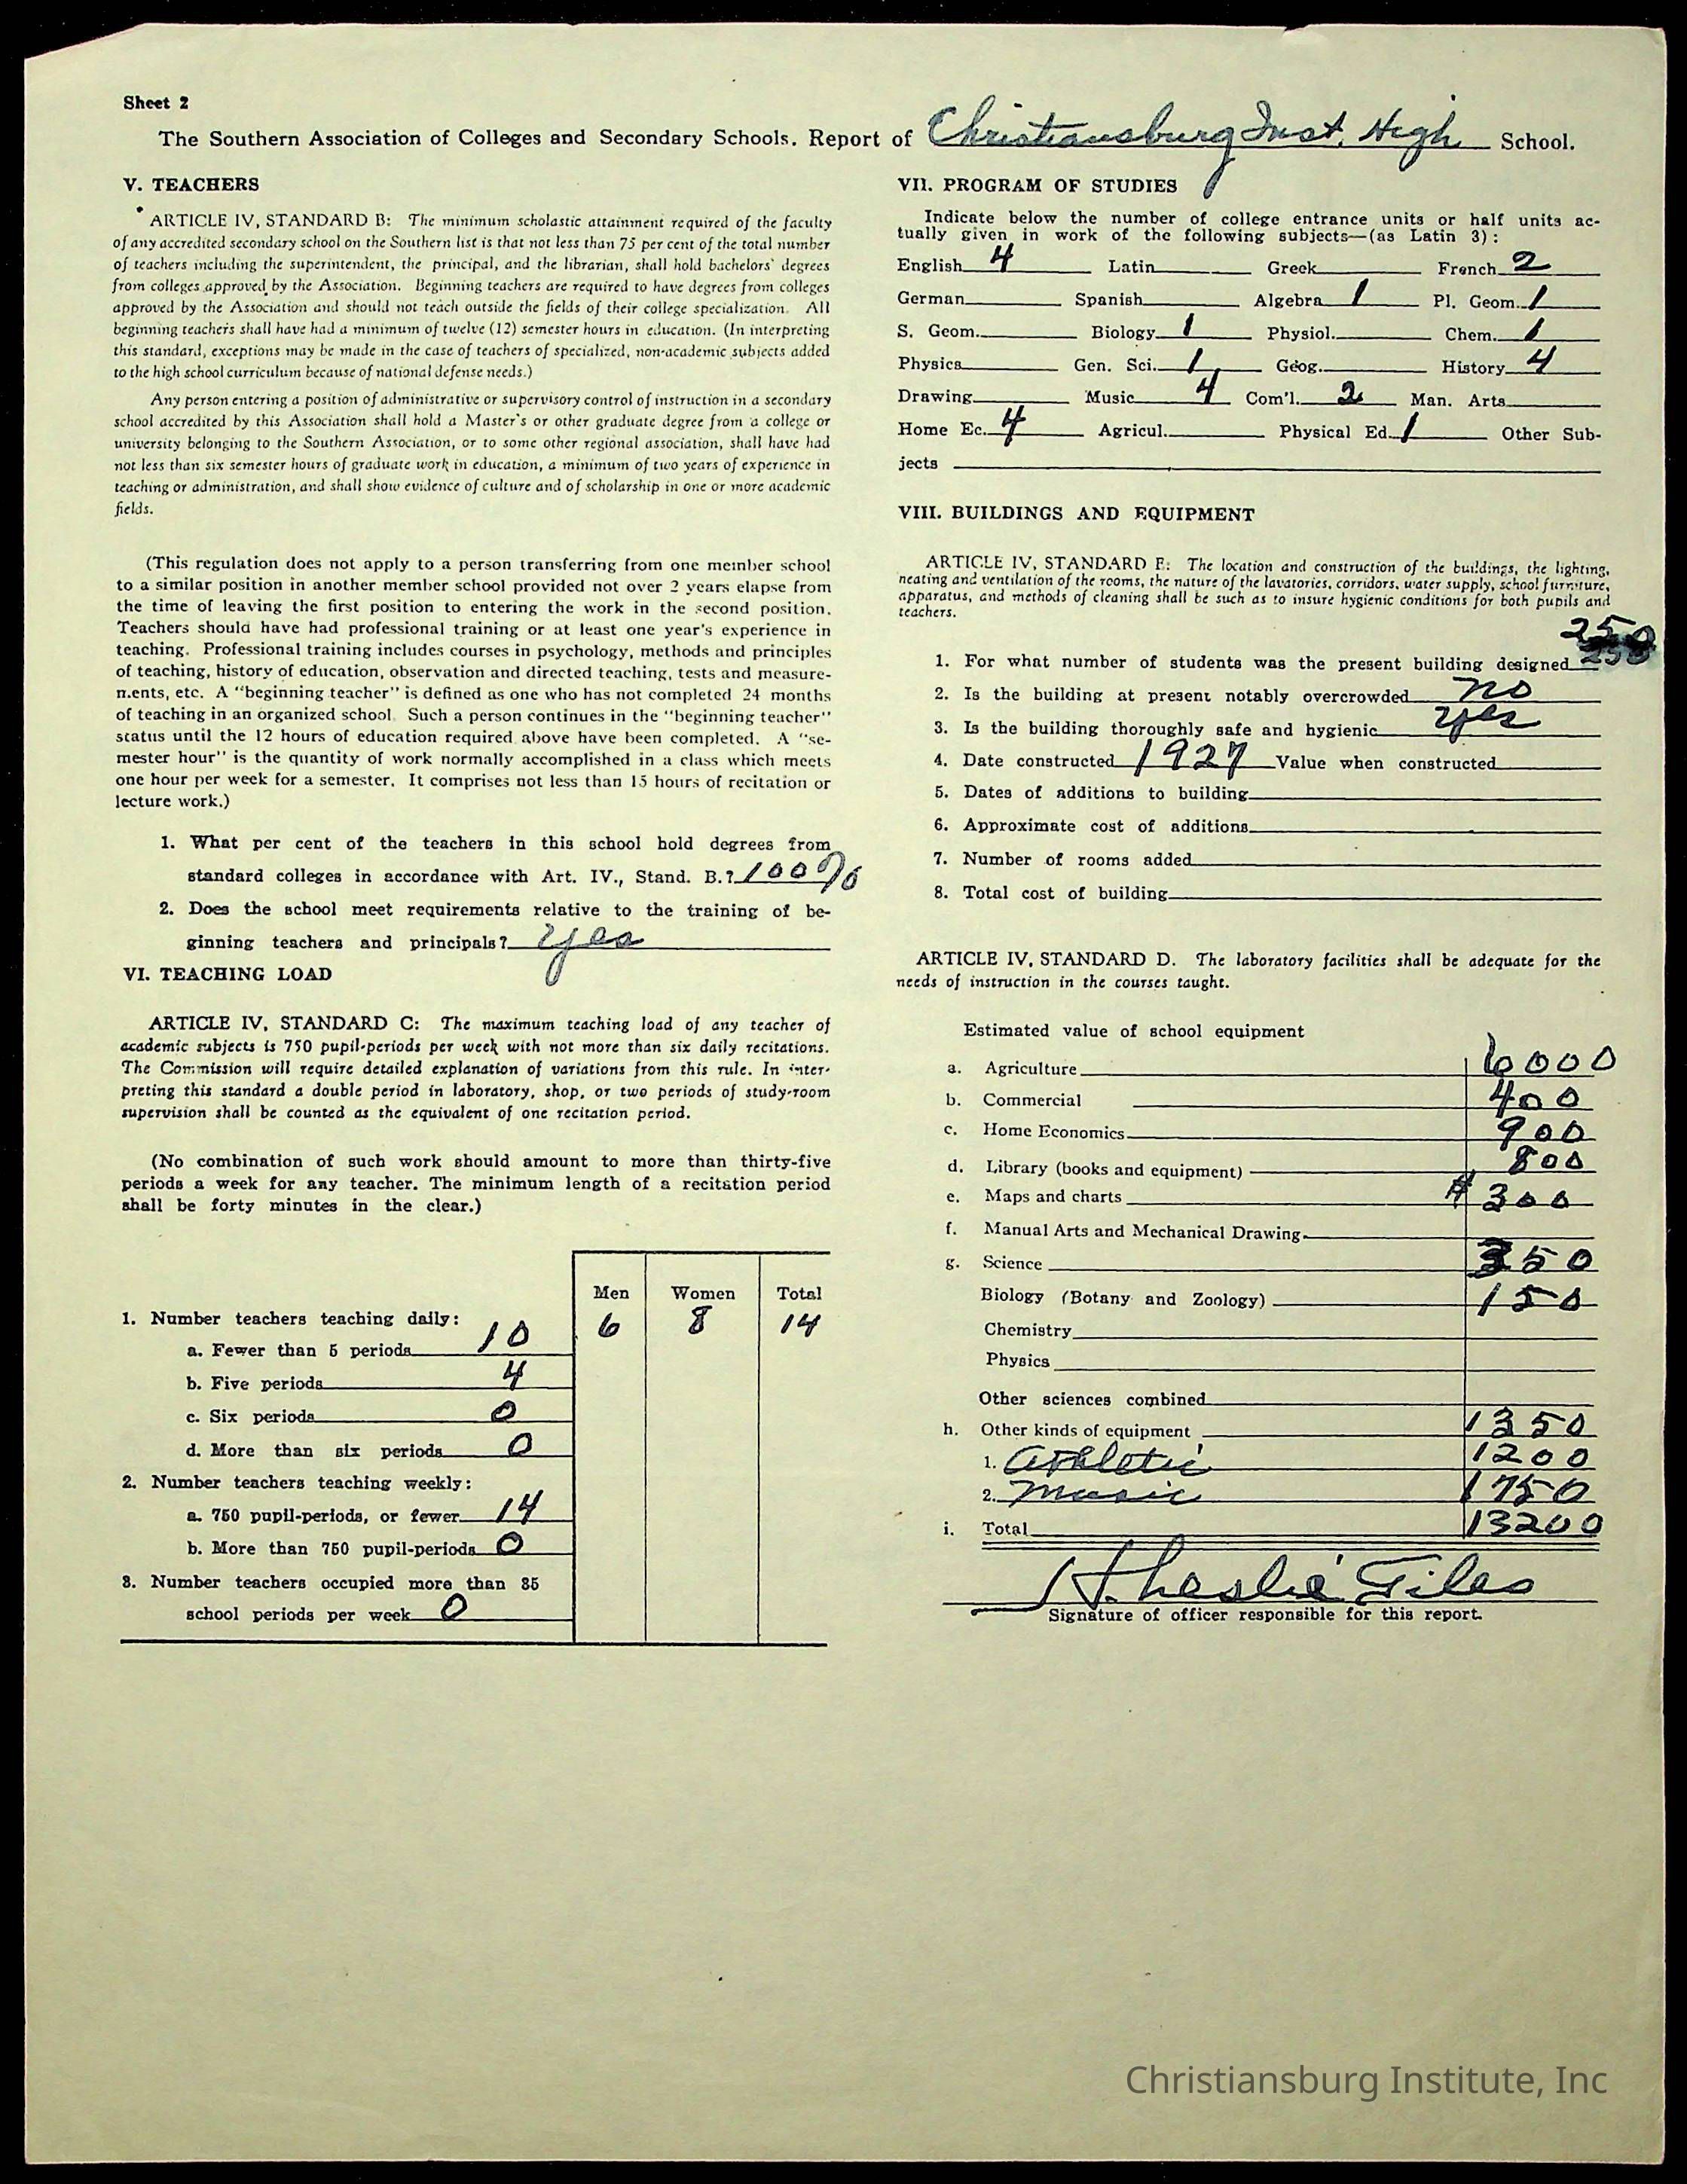 Sheet 2
The Southern Association of Colleges and Secondary Schools. Report of Christiansburg Inst. High School.
V. TEACHERS
ARTICLE IV, STANDARD B: The minimum scholastic attainment required of the faculty
of any accredited secondary school on the Southern list is that not less than 75 per cent of the total number
of teachers including the superintendent, the principal, and the librarian, shall hold bachelors' degrees
from colleges approved by the Association. Beginning teachers are required to have degrees from colleges
approved by the Association and should not teach outside the fields of their college specialization. All
beginning teachers shall have had a minimum of twelve (12) semester hours in education. (In interpreting
this standard, exceptions may be made in the case of teachers of specialized, non-academic subjects added
to the high school curriculum because of national defense needs.)
Any person entering a position of administrative or supervisory control of instruction in a secondary
school accredited by this Association shall hold a Master's or other graduate degree from a college or
university belonging to the Southern Association, or to some other regional association, shall have had
not less than six semester hours of graduate work in education, a minimum of two years of experience in
teaching or administration, and shall show evidence of culture and of scholarship in one or more academic
fields.
(This regulation does not apply to a person transferring from one member school
to a similar position in another member school provided not over 2 years elapse from
the time of leaving the first position to entering the work in the second position.
Teachers should have had professional training or at least one year's experience in
teaching. Professional training includes courses in psychology, methods and principles
of teaching, history of education, observation and directed teaching, tests and measure-
ments, etc. A "beginning teacher" is defined as one who has not completed 24 months
of teaching in an organized school. Such a person continues in the "beginning teacher"
status until the 12 hours of education required above have been completed. A "se-
mester hour" is the quantity of work normally accomplished in a class which meets
one hour per week for a semester. It comprises not less than 15 hours of recitation or
lecture work.)
1. What per cent of the teachers in this school hold degrees from
standard colleges in accordance with Art. IV., Stand. B.? 100%
2. Does the school meet requirements relative to the training of be-
ginning teachers and principals? yes
VI. TEACHING LOAD
ARTICLE IV, STANDARD C: The maximum teaching load of any teacher of
academic subjects is 750 pupil-periods per week with not more than six daily recitations.
The Commission will require detailed explanation of variations from this rule. In inter-
preting this standard a double period in laboratory, shop, or two periods of study-room
supervision shall be counted as the equivalent of one recitation period.
(No combination of such work should amount to more than thirty-five
periods a week for any teacher. The minimum length of a recitation period
shall be forty minutes in the clear.)
Men Women Total
1. Number teachers teaching daily: 6 8 14
a. Fewer than 5 periods 10
b. Five periods 4
c. Six periods 0
d. More than six periods 0
2. Number teachers teaching weekly:
a. 750 pupil-periods, or fewer 14
b. More than 750 pupil-periods 0
3. Number teachers occupied more than 35
school periods per week 0
VII. PROGRAM OF STUDIES
Indicate below the number of college entrance units or half units ac-
tually given in work of the following subjects—(as Latin 3):
English 4 Latin Greek French 2
German Spanish Algebra 1 Pl. Geom. 1
S. Geom. Biology 1 Physiol. Chem. 1
Physics Gen. Sci. 1 Geog. History 4
Drawing Music 4 Com'l. 2 Man. Arts
Home Ec. 4 Agricul. Physical Ed. 1 Other Sub-
jects
VIII. BUILDINGS AND EQUIPMENT
ARTICLE IV, STANDARD E: The location and construction of the buildings, the lighting,
heating and ventilation of the rooms, the nature of the lavatories, corridors, water supply, school furniture,
apparatus, and methods of cleaning shall be such as to insure hygienic conditions for both pupils and
teachers.
1. For what number of students was the present building designed 250
2. Is the building at present notably overcrowded no
3. Is the building thoroughly safe and hygienic yes
4. Date constructed 1927 Value when constructed
5. Dates of additions to building
6. Approximate cost of additions
7. Number of rooms added
8. Total cost of building
ARTICLE IV, STANDARD D. The laboratory facilities shall be adequate for the
needs of instruction in the courses taught.
Estimated value of school equipment
a. Agriculture 6000
b. Commercial 400
c. Home Economics 900
d. Library (books and equipment) 800
e. Maps and charts $ 300
f. Manual Arts and Mechanical Drawing
g. Science 350
Biology (Botany and Zoology) 150
Chemistry
Physics
Other sciences combined
h. Other kinds of equipment 1350
1. Athletic 1200
2. Music 1750
i. Total 13200
H. Leslie Giles
Signature of officer responsible for this report.
Christiansburg Institute, Inc